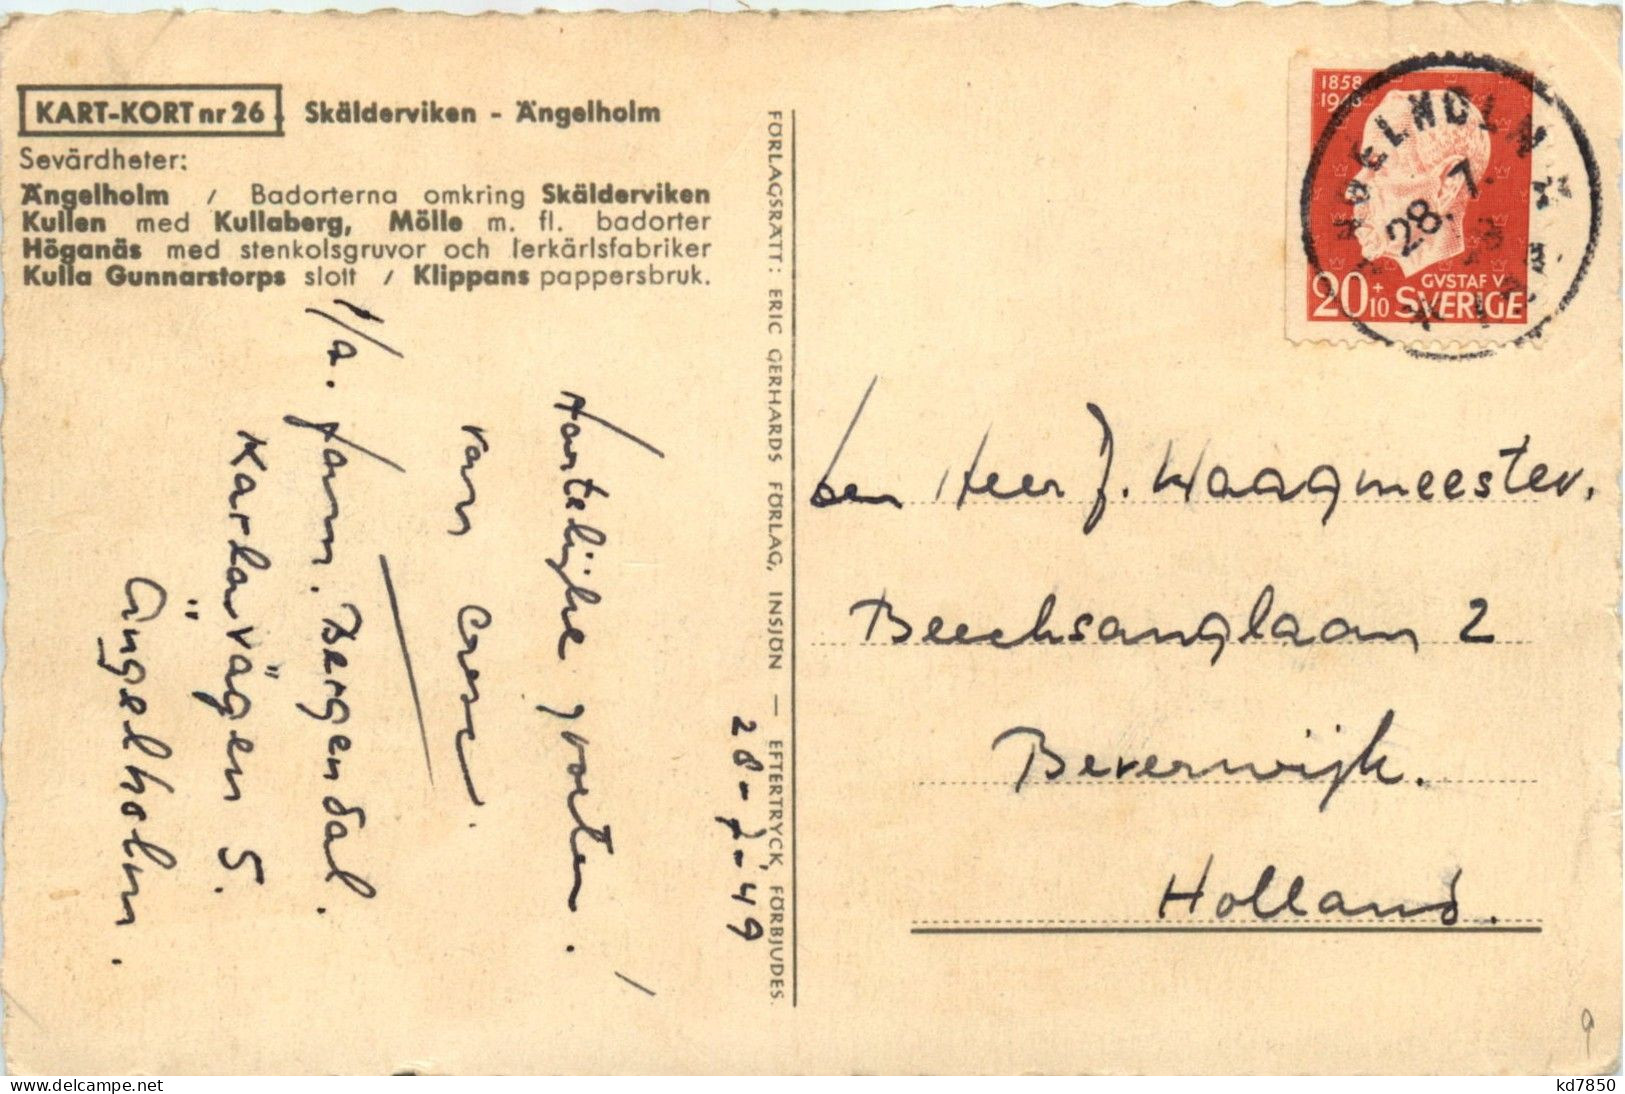 KART-KORT nr 26 Skälderviken - Ängelholm
Sevärdheter:
Ängelholm / Badorterna omkring Skälderviken
Kullen med Kullaberg, Mölle m. fl. badorter
Höganäs med stenkolsgruvor och lerkärlsfabriker
Kulla Gunnarstorps slott / Klippans pappersbruk.
FÖRLAGSRÄTT: ERIC GERHARDS FÖRLAG, INSJÖN — EFTERTRYCK FÖRBJUDES.
28-7-'49
Hartelijke groeten.
van
1/a. fam. Bergendal.
Karlavägen 5.
Ängelholm.
1858
GVSTAF V
20+10 SVERIGE
ÄNGELHOLM
28. 7.
den Heer J. Waagmeester.
Beecksanglaan 2
Beverwijk.
Holland.
kd7850